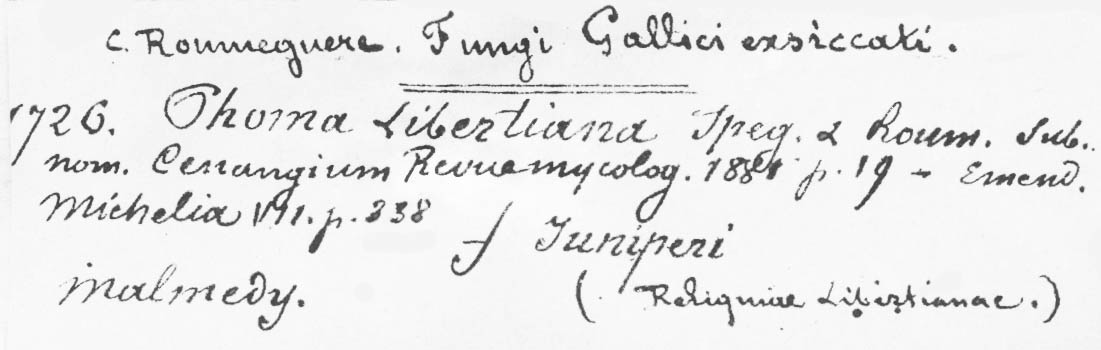 C. Roumeguere. Fungi Gallici exsiccati.
1726. Phoma Libertiana Speg. & Roum. Sub.
nom. Cenangium Revue mycolog. 1881 p. 19 - Emend.
Michelia VII. p. 338
f Juniperi
Malmedy. (Reliquiae Libertianae.)